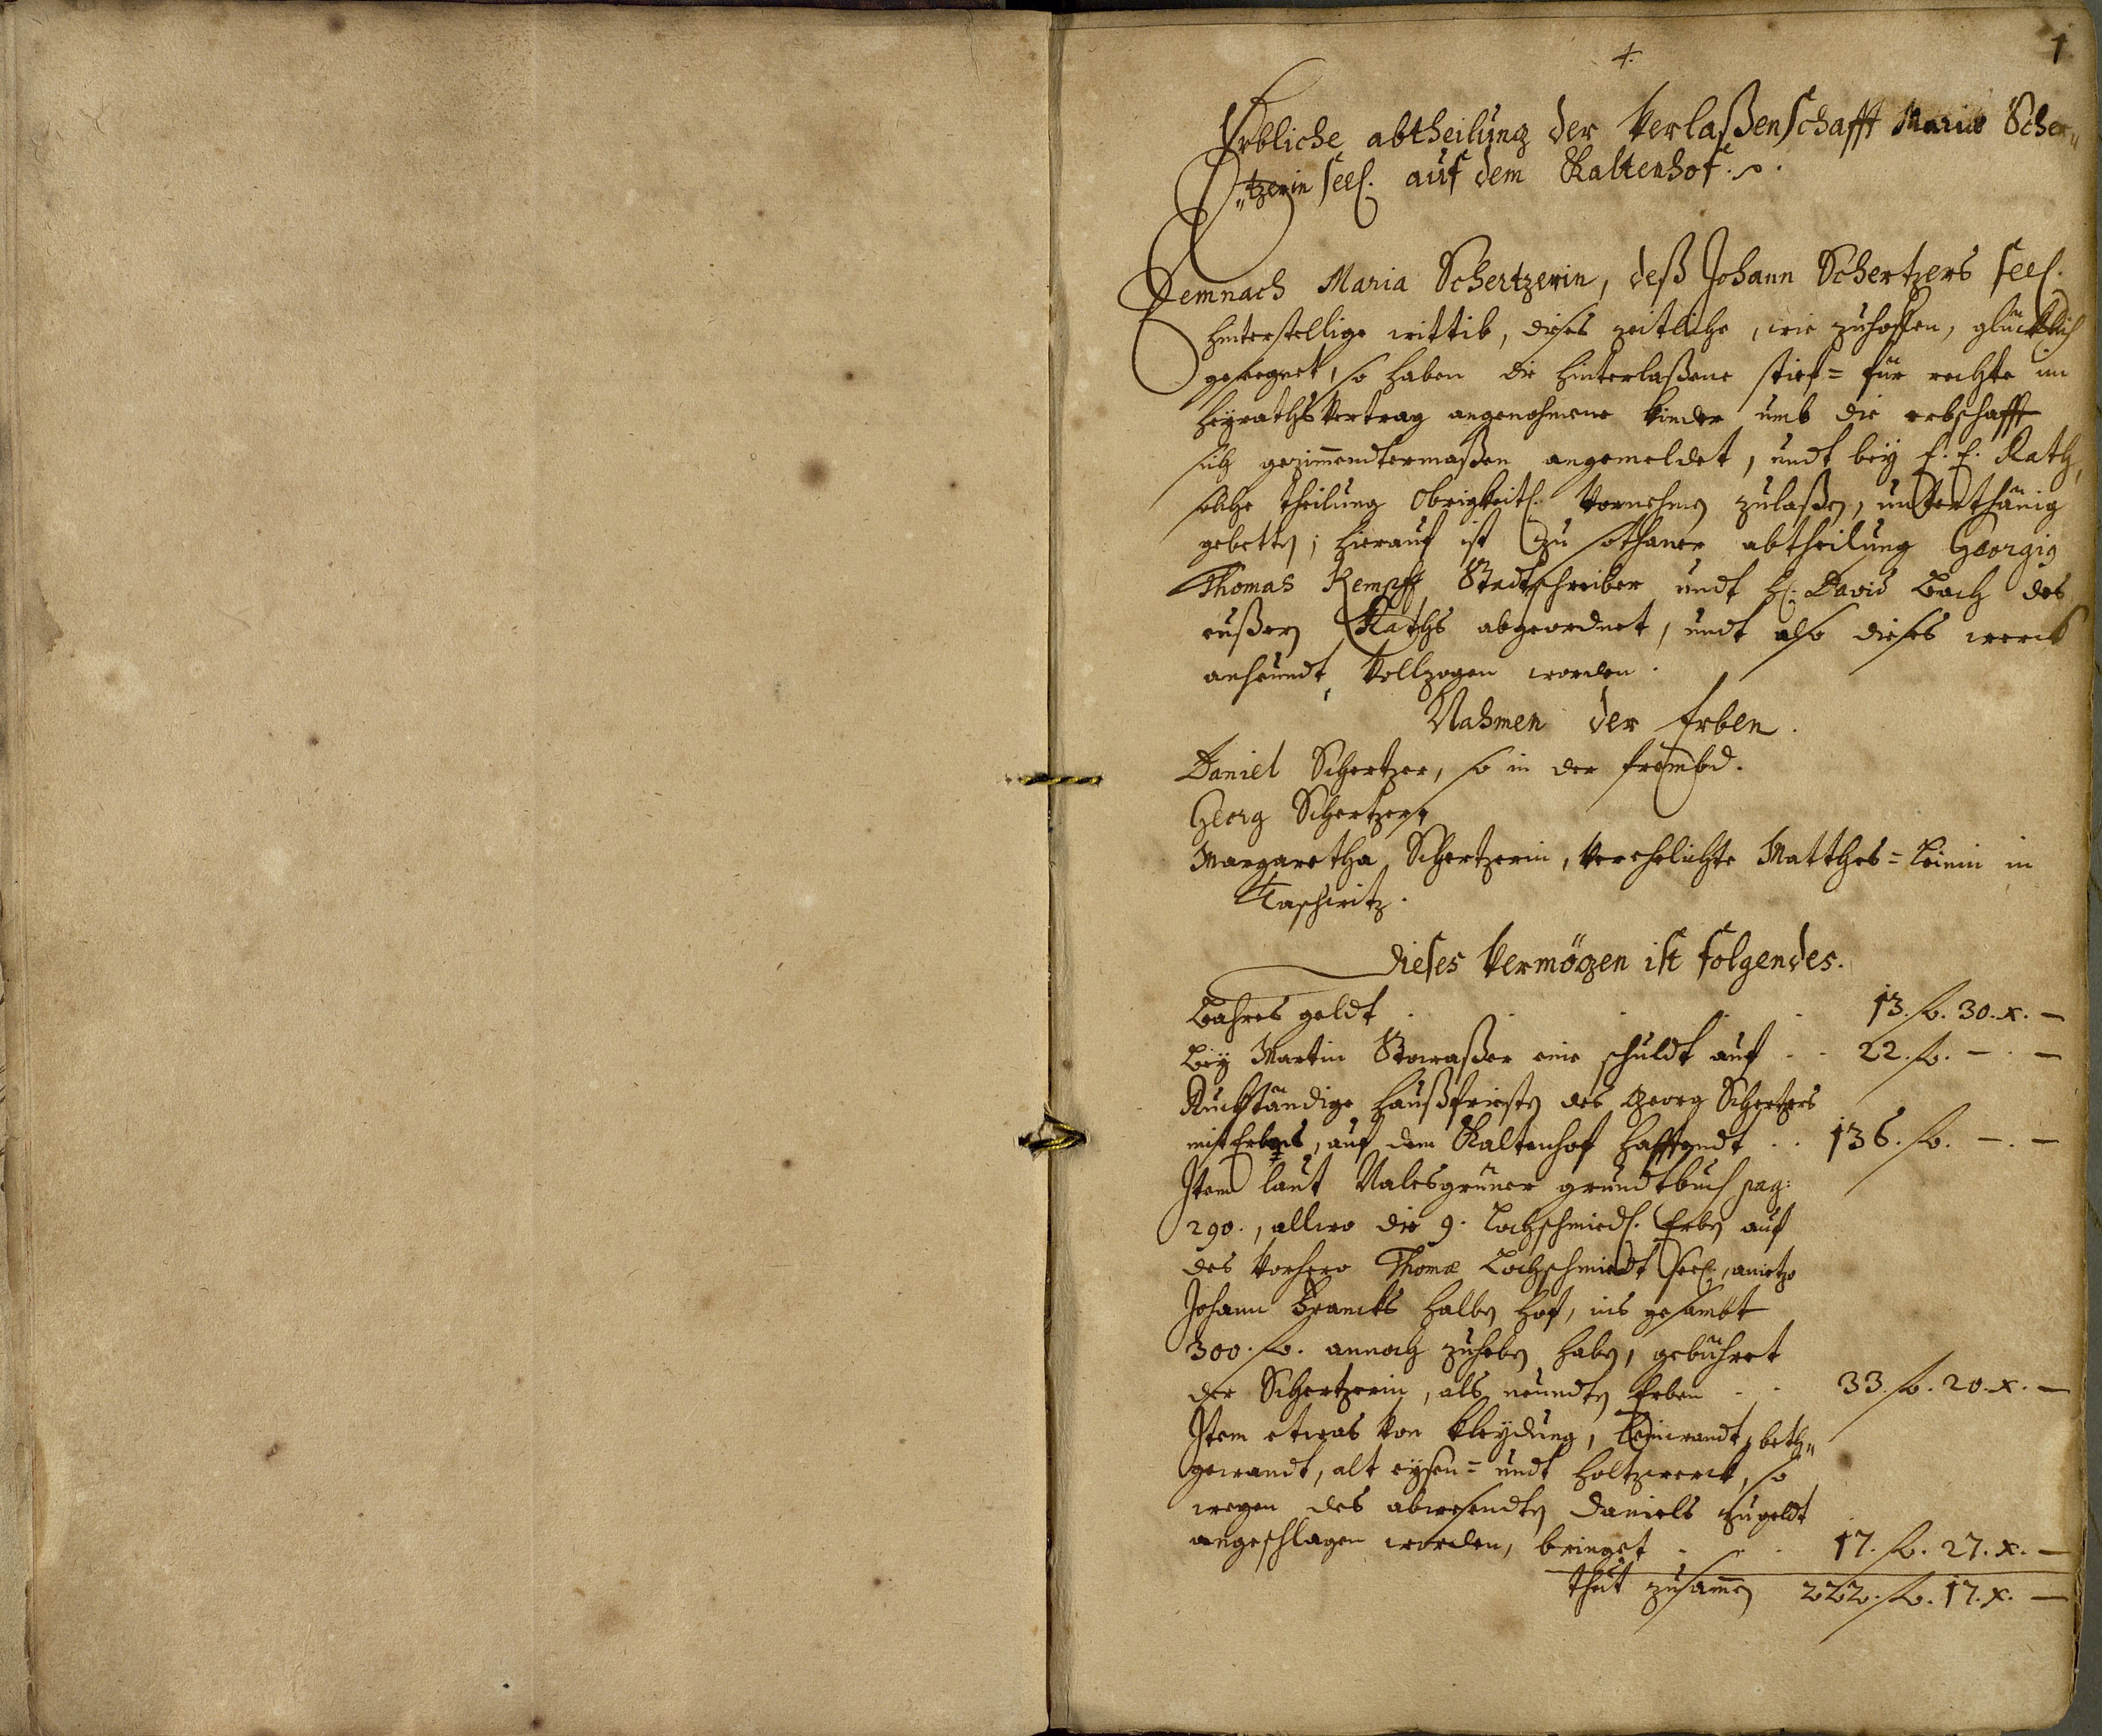 1
Erbliche abtheilung der Verlaßenschafft Mariæ Scher„
„tzerin seel. auf dem Kaltenhof.
Demnach Maria Schertzerin, deß Johann Schertzers seel.
hinterstellige wittib, dieses zeitliche, wie zuhoffen, glücklich
gesegnet, so haben die hinterlaßene stief= für rechte im
heyraths Vertrag angenohmene kinder umb die erbschafft
sich gezimmendtermaßen angemeldet, undt bey E. E. Rath,
solche theilung Obrigkeitl. Vornehmen zulaßen, unterthänig
gebetten; hierauf ist zu sothaner abtheilung Georgig
Thomas Kempff Stadtschreiber undt H. David Bach des
eußern Raths abgeordnet, undt also dieses werck
anheundt Vollzogen worden.
Nahmen der Erben.
Daniel Schertzer, so in der frembd.
Georg Schertzer,
Margaretha Schertzerin, Verehelichte Matthes= Leinin in
Taschwitz.
dieses Vermögen ist folgendes.
Bahres geldt . . . . 13. fl. 30. x. —
Bey Martin Stowaßer eine schuldt auf . . 22. fl. — . —
Ruckständige haußfristen des Georg Schertzers
mit Erbens, auf dem Kaltenhof hafftendt . . 136. fl. — . —
Item laut Nalesgrüner grundtbuch pag:
290., allwo die 9. Lochschmiedl. Erben auf
des Vorhero Thomæ Lochschmiedt seel., anietzo
Johann Francks halben hof, ins gesambt
300. fl. annoch zuheben haben, gebühret
der Schertzerin, als neundten Erben . . 33. fl. 20. x. —
Item etwas Von kleydung, Leinwandt, beth„
gewandt, alt eysen= undt holtzwerck, so
wegen des abwesendten Daniels zu geldt
angeschlagen worden, bringet . . 17. fl. 27. x. —
thut zusammen 222. fl. 17. x. —